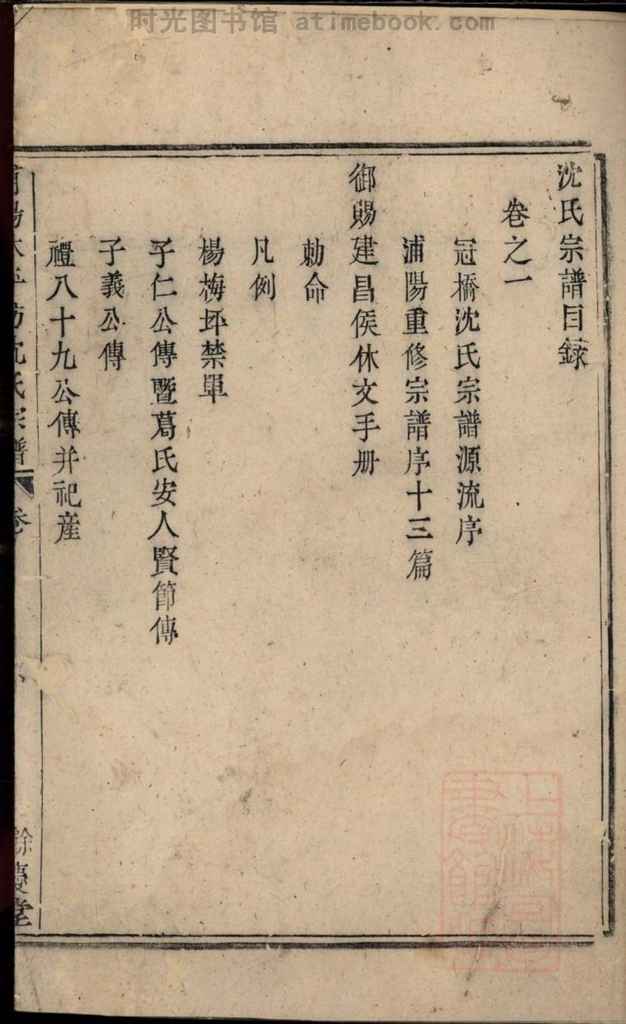 时光图书馆 atimebook.com
沈氏宗譜目錄
卷之一
冠橋沈氏宗譜源流序
浦陽重修宗譜序十三篇
御賜建昌侯休文手册
勅命
凡例
楊梅坪禁單
子仁公傳暨葛氏安人賢節傳
子義公傳
禮八十九公傳并祀產
沈氏宗譜
卷
餘慶堂